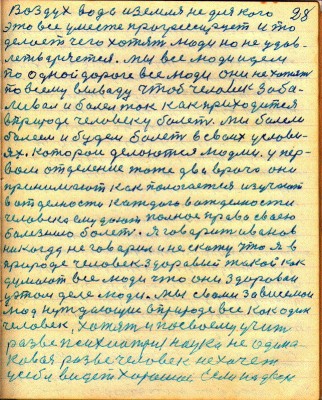 98
Воздух вода и земля не для кого
это все уместе прогрессирует и то
делоет чего хотят люди но не удов-
летворяется. мы все люди идем
по одной дороге все люди они не хотят
по всему выводу чтоб человек забо-
ливал и болел так как приходится
в природе человеку болеть. мы болели
болеем и будем болеть в своих услови-
ях. которои делоются людми. у пер-
вом отделение тоже два врача они
принимают как пологается изучают
в отделность каждого в отделности
человека ему дают полное право своею
болезнию болеть. Я говорит иванов
никогду не говорил и не скожу что я в
природе человек здоровый такой как
думают все люди что они здоровои
у этом деле люди. мы своими
нуждающие в природе все как один
человек, хотят и посвоему учит
разве психиатрия наука не одина-
ковая разве человек не хачет
у себя видеть хорошои